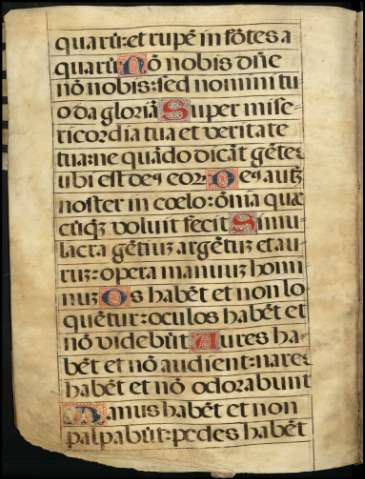 quarū: et rupē in fōtes a
quarū Nō nobis dn̄e
nō nobis: sed nomini tu
o da gloriā Super mise
ricordia tua et veritate
tua: ne quādo dicāt gētes
ubi est deꝰ eoꝝ Deꝰ autē
noster in coelo: ōnia quæ
cūqꝫ voluit fecit Simu
lacra gētiuꝫ argētuꝫ et au
ruꝫ: opera manuuꝫ homi
nuꝫ Os habēt et non lo
quētur: oculos habēt et
nō videbūt Aures ha
bēt et nō audient: nares
habēt et nō odorabunt
Manus habēt et non
palpabūt: pedes habēt